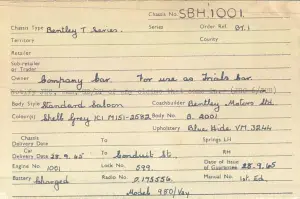 Chassis No. SBH.1001.
Chassis Type Bentley T Series. Series Order Ref. DT.1
Territory County
Retailer
Sub-retailer or Trader
Owner Company Car. For use as Trials Car.
Body Style Standard Saloon Coachbuilder Bentley Motors Ltd
Colour(s) Shell Grey ICI M151-2582 Body No. B. 2001
Upholstery Blue Hide VM.3244
Chassis Delivery Date To Springs LH
Car Delivery Date 28.9.65 To Conduit St. RH
Engine No. 1001 Lock No. 599. Date of Issue of Guarantee 28.9.65
Battery Charged Radio No. D.175556. Manual No. 1st. Ed.
Model 950/Vay